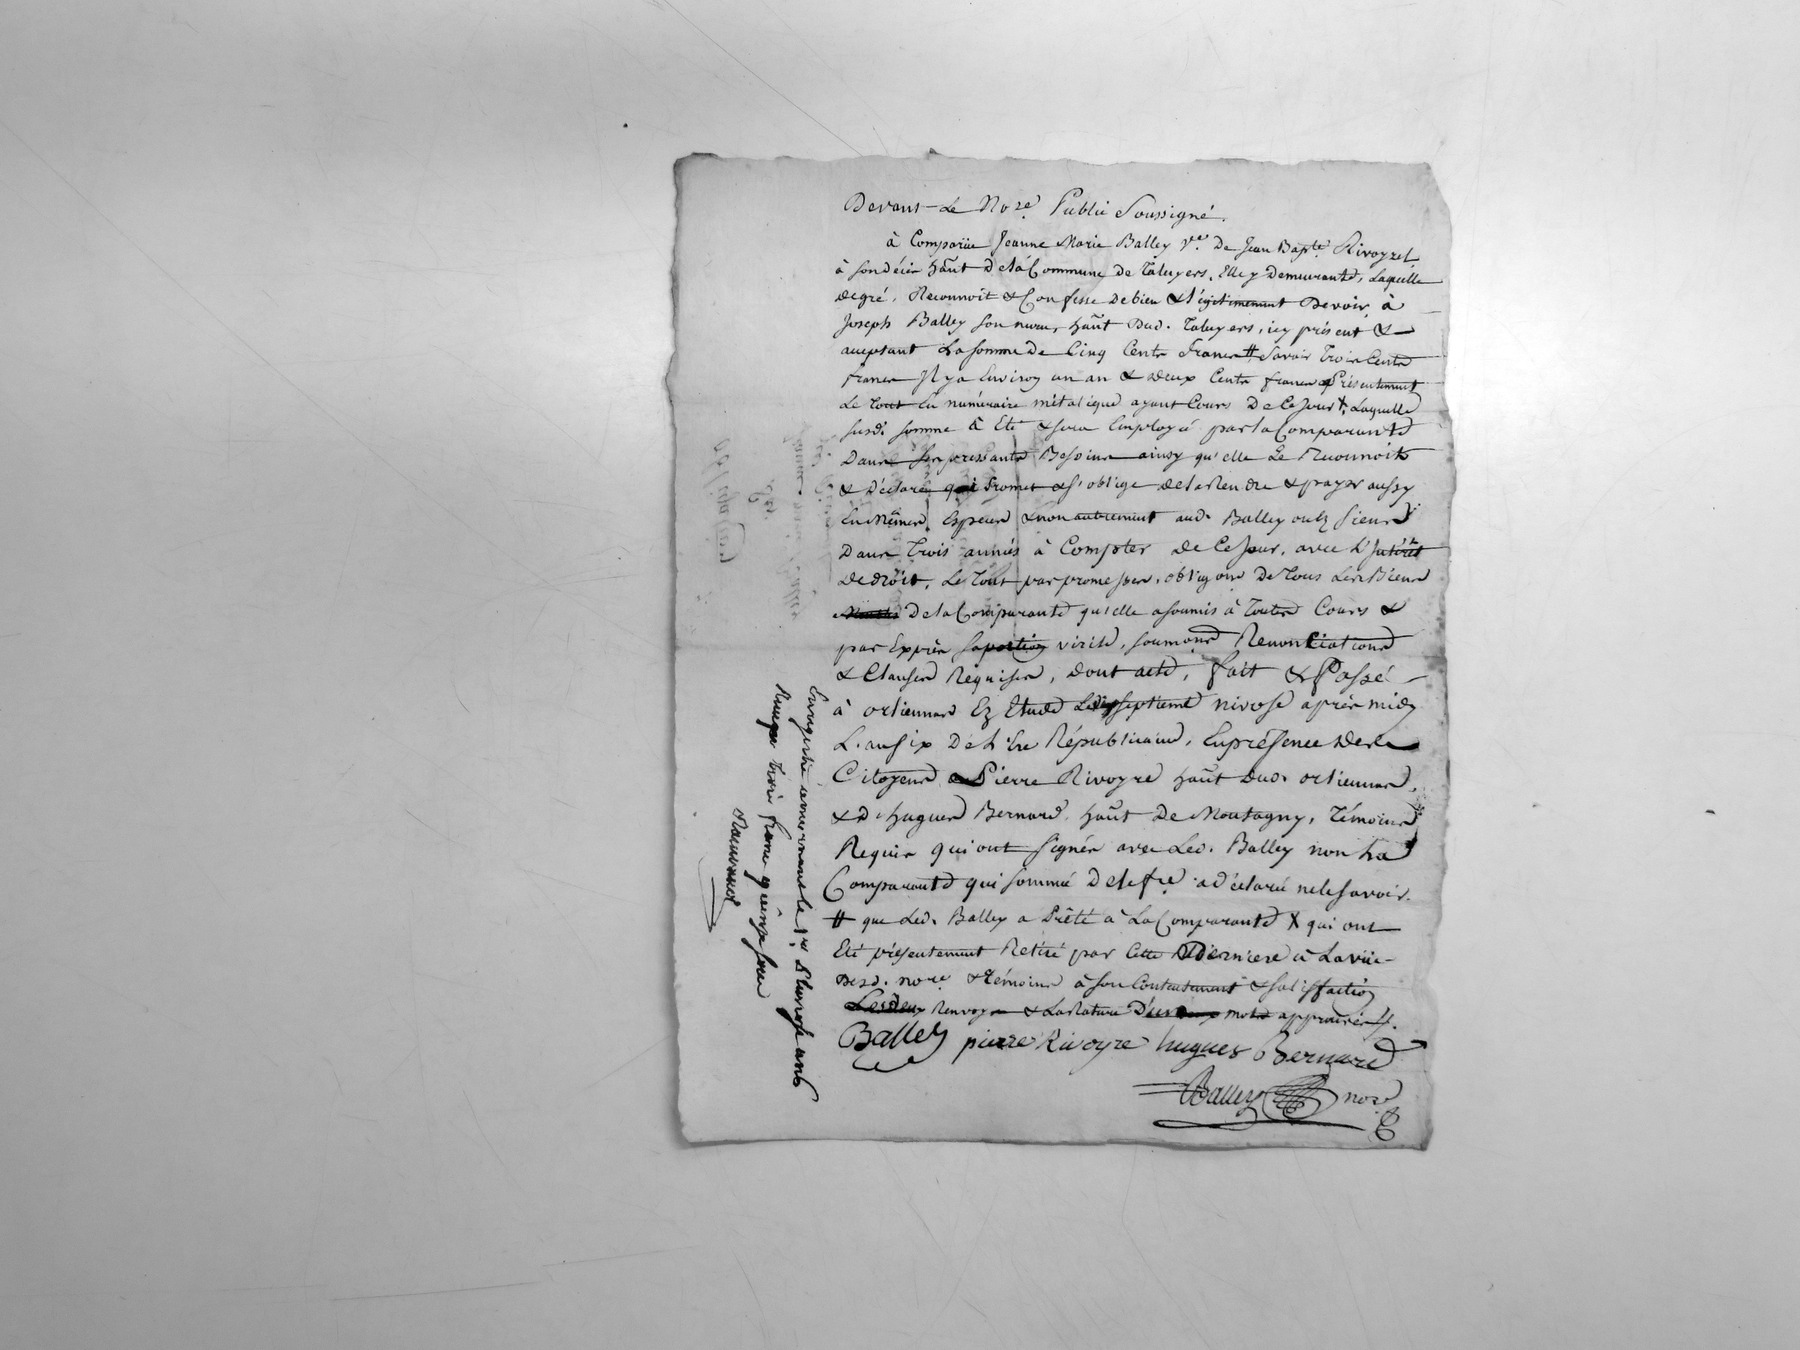 Devant Le No.re Public Soussigné.
à Comparüe Jeanne Marie Balley V.e De Jean Bap.te Rivoyret
à son décès haūt de la Commune de Taluyers, Elle y demeurante, Laquelle
de gré, Reconnoit & Confesse de bien & légitimement Devoir à
Joseph Balley son neveu haūt Dud. Taluyers, icy présent &
aceptant La somme De Cinq Cents francs # Savoir Trois Cents
francs Il y a Environ un an & deux Cents francs Présentement
Le Tout En numéraire métalique ayant Cours De Ce Jour X, Laquelle
susd. somme à Eté & sera Employé par la Comparante
Dans Ses pressants Besoins ainsy qu'elle Le Reconnoit
& Déclare, Promet & s'oblige de la Rendre & payer aussy
En Mêmes Especes & non autrement aud. Balley ou Ez siens
Dans Trois années à Compter de Ce Jour, avec L'Intérêt
de droit, Le Tout par promesses, oblig.ons De Tous Les Biens
De la Comparante qu'elle a soumis à Toutes Cours &
par Exprès sa portion virile, soumons Renonciations
& Clauses Requises, dont acte, fait & Passé
à orliennas Ez Etude Le dixseptieme nivose après midy
L'an six De L'Ere Républicaine, En présence de
Citoyens Pierre Rivoyre haūt Dud. orliennas,
& d'hugues Bernard haūt De Montagny, Témoins
Requis qui ont signés avec Led. Balley non La
Comparante qui sommé de le fre. a déclaré ne le savoir.
# que Led. Balley a Prêté à La Comparante X qui ont
Eté présentement Retiré par Cette Derniere à La vüe
Desd. nore & Témoins à son Contentement & satisfaction
Les deux Renvoys & La Rature D'un mots approuvés.
Balley pierre Rivoyre hugues Bernard
Balley nore
Enregistré à mornant le 1er Pluviose an 6
Reçu trois francs quinze sous